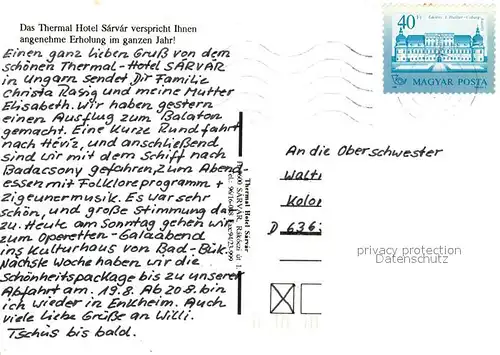 Das Thermal Hotel Sárvár verspricht Ihnen
angenehme Erholung im ganzen Jahr!
Einen ganz lieben Gruß von dem
schönen Thermal-Hotel SÁRVÁR
in Ungarn sendet Dir Familie
Christa Rasig und meine Mutter
Elisabeth. Wir haben gestern
einen Ausflug zum Balaton
gemacht. Eine kurze Rundfahrt
nach Héviz, und anschließend
sind wir mit dem Schiff nach
Badacsony gefahren, zum Abend
essen mit Folkloreprogramm +
Zigeunermusik. Es war sehr
schön, und große Stimmung da
zu. Heute am Sonntag gehen wir
zum Operetten-Galaabend
ins Kulturhaus von Bad-Bük.
Nächste Woche haben wir die
Schönheitspackage bis zu unserer
Abfahrt am. 19.8. Ab 20.8. bin
ich wieder in Enkheim. Auch
viele liebe Grüße an Willi.
Tschüs bis bald.
Thermal Hotel Sárvár
SÁRVÁR, Rákóczi út 1.
40 Ft
MAGYAR POSTA
An die Oberschwester
Walti
Kolon
D 636
privacy protection
Datenschutz